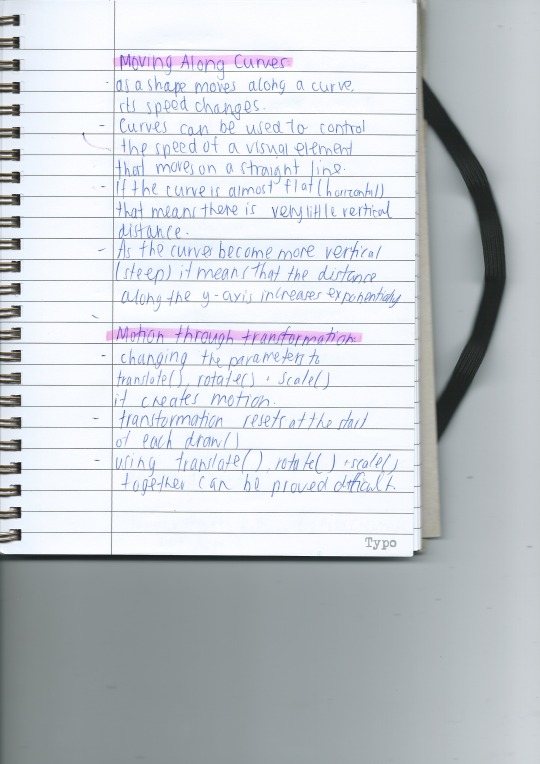 Moving Along Curves
- as a shape moves along a curve,
its speed changes.
- Curves can be used to control
the speed of a visual element
that moves on a straight line.
- If the curve is almost flat (horizontal)
that means there is very little vertical
distance.
- As the curves become more vertical
(steep) it means that the distance
along the y-axis increases exponentially
Motion through transformation.
- changing the parameters to
translate(), rotate() + scale()
it creates motion.
- transformation resets at the start
of each draw()
- using translate(), rotate() + scale()
together can be proved difficult.
Typo